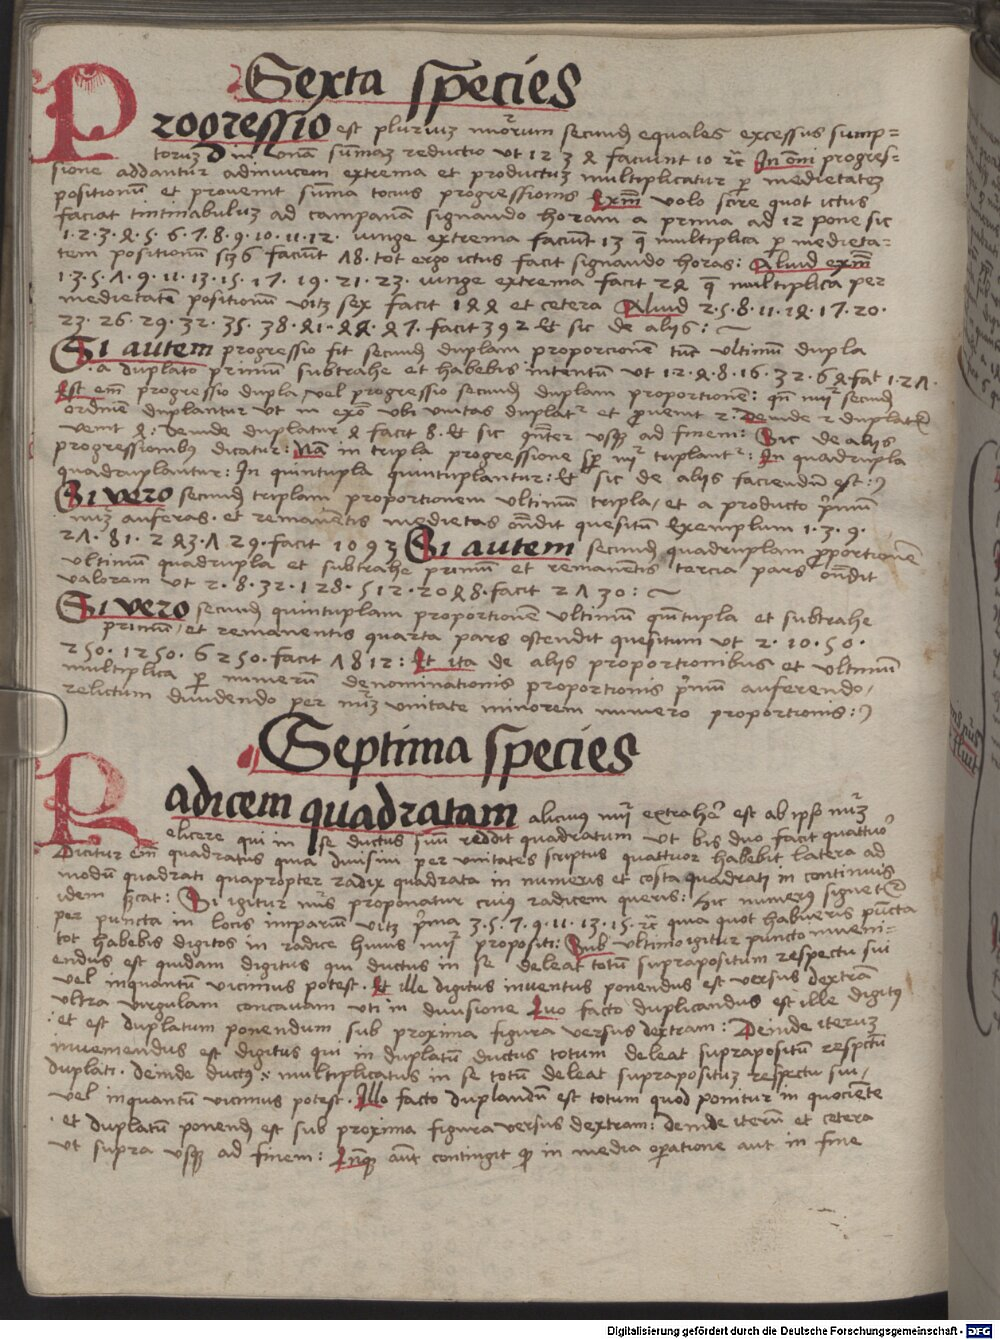 Sexta species
Progressio est pluriuz nūorum secundꝫ equales excessus sump=
toruꝫ in unā sūmaꝫ reductio ut 1 2 3 4 faciunt 10 ꝛc̄ In omi progres-
sione addantur adinuicem extrema et productuꝫ multiplicatur ꝑ medietateꝫ
positionū et proueniet sūma tocius progressionis Exm̄ volo scire quot ictus
faciat tintinabuluꝫ ad campanā signando horam a prima ad 12 pone sic
1·2·3·4·5·6·7·8·9·10·11·12· iunge extrema faciūt 13 q̄ multiplica ꝑ medieta-
tem positionū scꝫ 6 faciūt 78· tot ergo ictus facit signando horas: Aliud exm̄
1·3·5·7·9·11·13·15·17·19·21·23· iunge extrema facit 24 q̄ multiplica per
medietatem positionū vitꝫ sex facit 144 et cetera Aliud 2·5·8·11·14·17·20·
23·26·29·32·35·38·41·44·47· facit 392 et sic de alijs:
Si autem progressio fit secundꝫ duplam proporcionē tūc ultimū dupla
a duplato primū subtrahe et habebis intentū ut 1·2·4·8·16·32·64 facit 127·
Est em̄ progressio dupla vel progressio secundꝫ duplam proportionē: qn̄ nūi secundꝫ
ordinē duplantur ut in exo ubi unitas duplatr et ꝓuenit 2· Deinde 2 duplatr
venit 4: deinde duplatur 4 facit 8· et sic qn̄ter usqꝫ ad finem: Sic de alijs
progressionibus dicatur: Nā in tripla progressione sp nūi triplantr: In quadrupla
quadruplantur: In quintupla quintuplantur: et sic de alijs faciendū est:
Si vero secundꝫ triplam proportionem ultimū tripla, et a producto prīmū
nūꝫ auferas· et remanētis medietas on̄dit quesitū Exemplum 1·3·9·
27·81·243·729· facit 1093 Si autem secundꝫ quadruplam ꝓportionē
ultimū quadrupla et subtrahe primū et remanētis tercia pars on̄dit
valorem ut 2·8·32·128·512·2048· facit 2730:
Si vero secundꝫ quintuplam proportionē ultimū qūtupla et subtrahe
primū, et remanentis quarta pars ostendit quesitum ut 2·10·50·
250·1250·6250· facit 7812: Et ita de alijs proportionibus et ultimū
multiplica ꝑ numerū denominationis proportionis prīmū auferendo,
relictum diuidendo per nūꝫ unitate minorem numero proportionis:
Septima species
Radicem quadratam alicuius nūi extrahē est ab ipso nūꝫ
elicere qui in se ductus suū reddit quadratum ut bis duo facit quattuor
Dicitur em̄ quadratus quia diuisim per unitates scriptus quattuor habebit latera ad
modū quadrati quapropter radix quadrata in numeris et costa quadrati in continuis
idem scat: Si igitur nūs proponatur cuius radicem queris: hic numerus signetr
per puncta in locis imparium vitꝫ prīma 3·5·7·9·11·13·15· ꝛc̄ quia quot habueris pūcta
tot habebis digitos in radice huius nūi propositi: Sub ultimo igitur puncto inueni=
endus est quidam digitus qui ductus in se deleat totū suprapositum respectu sui
vel inquantū vicinius potest· Et ille digitus inuentus ponendus est versus dextrā
ultra virgulam concauam uti in diuisione Quo facto duplicandus est ille digitus
et est duplatum ponendum sub proxima figura versus dextram: Deinde iteruꝫ
inueniendus est digitus qui in duplatū ductus totum deleat suprapositū respctū
duplati· deinde ductus multiplicatus in se totū deleat suprapositum respectu sui,
vel inquantū vicinius potest· Illo facto duplandū est totum quod ponitur in quociēte
et duplatū ponendꝫ est sub proxima figura versus dextram: deinde iterū et cetera
ut supra usqꝫ ad finem: Quqꝫ aūt contingit ꝙ in media opatione aut in fine
Digitalisierung gefördert durch die Deutsche Forschungsgemeinschaft - DFG